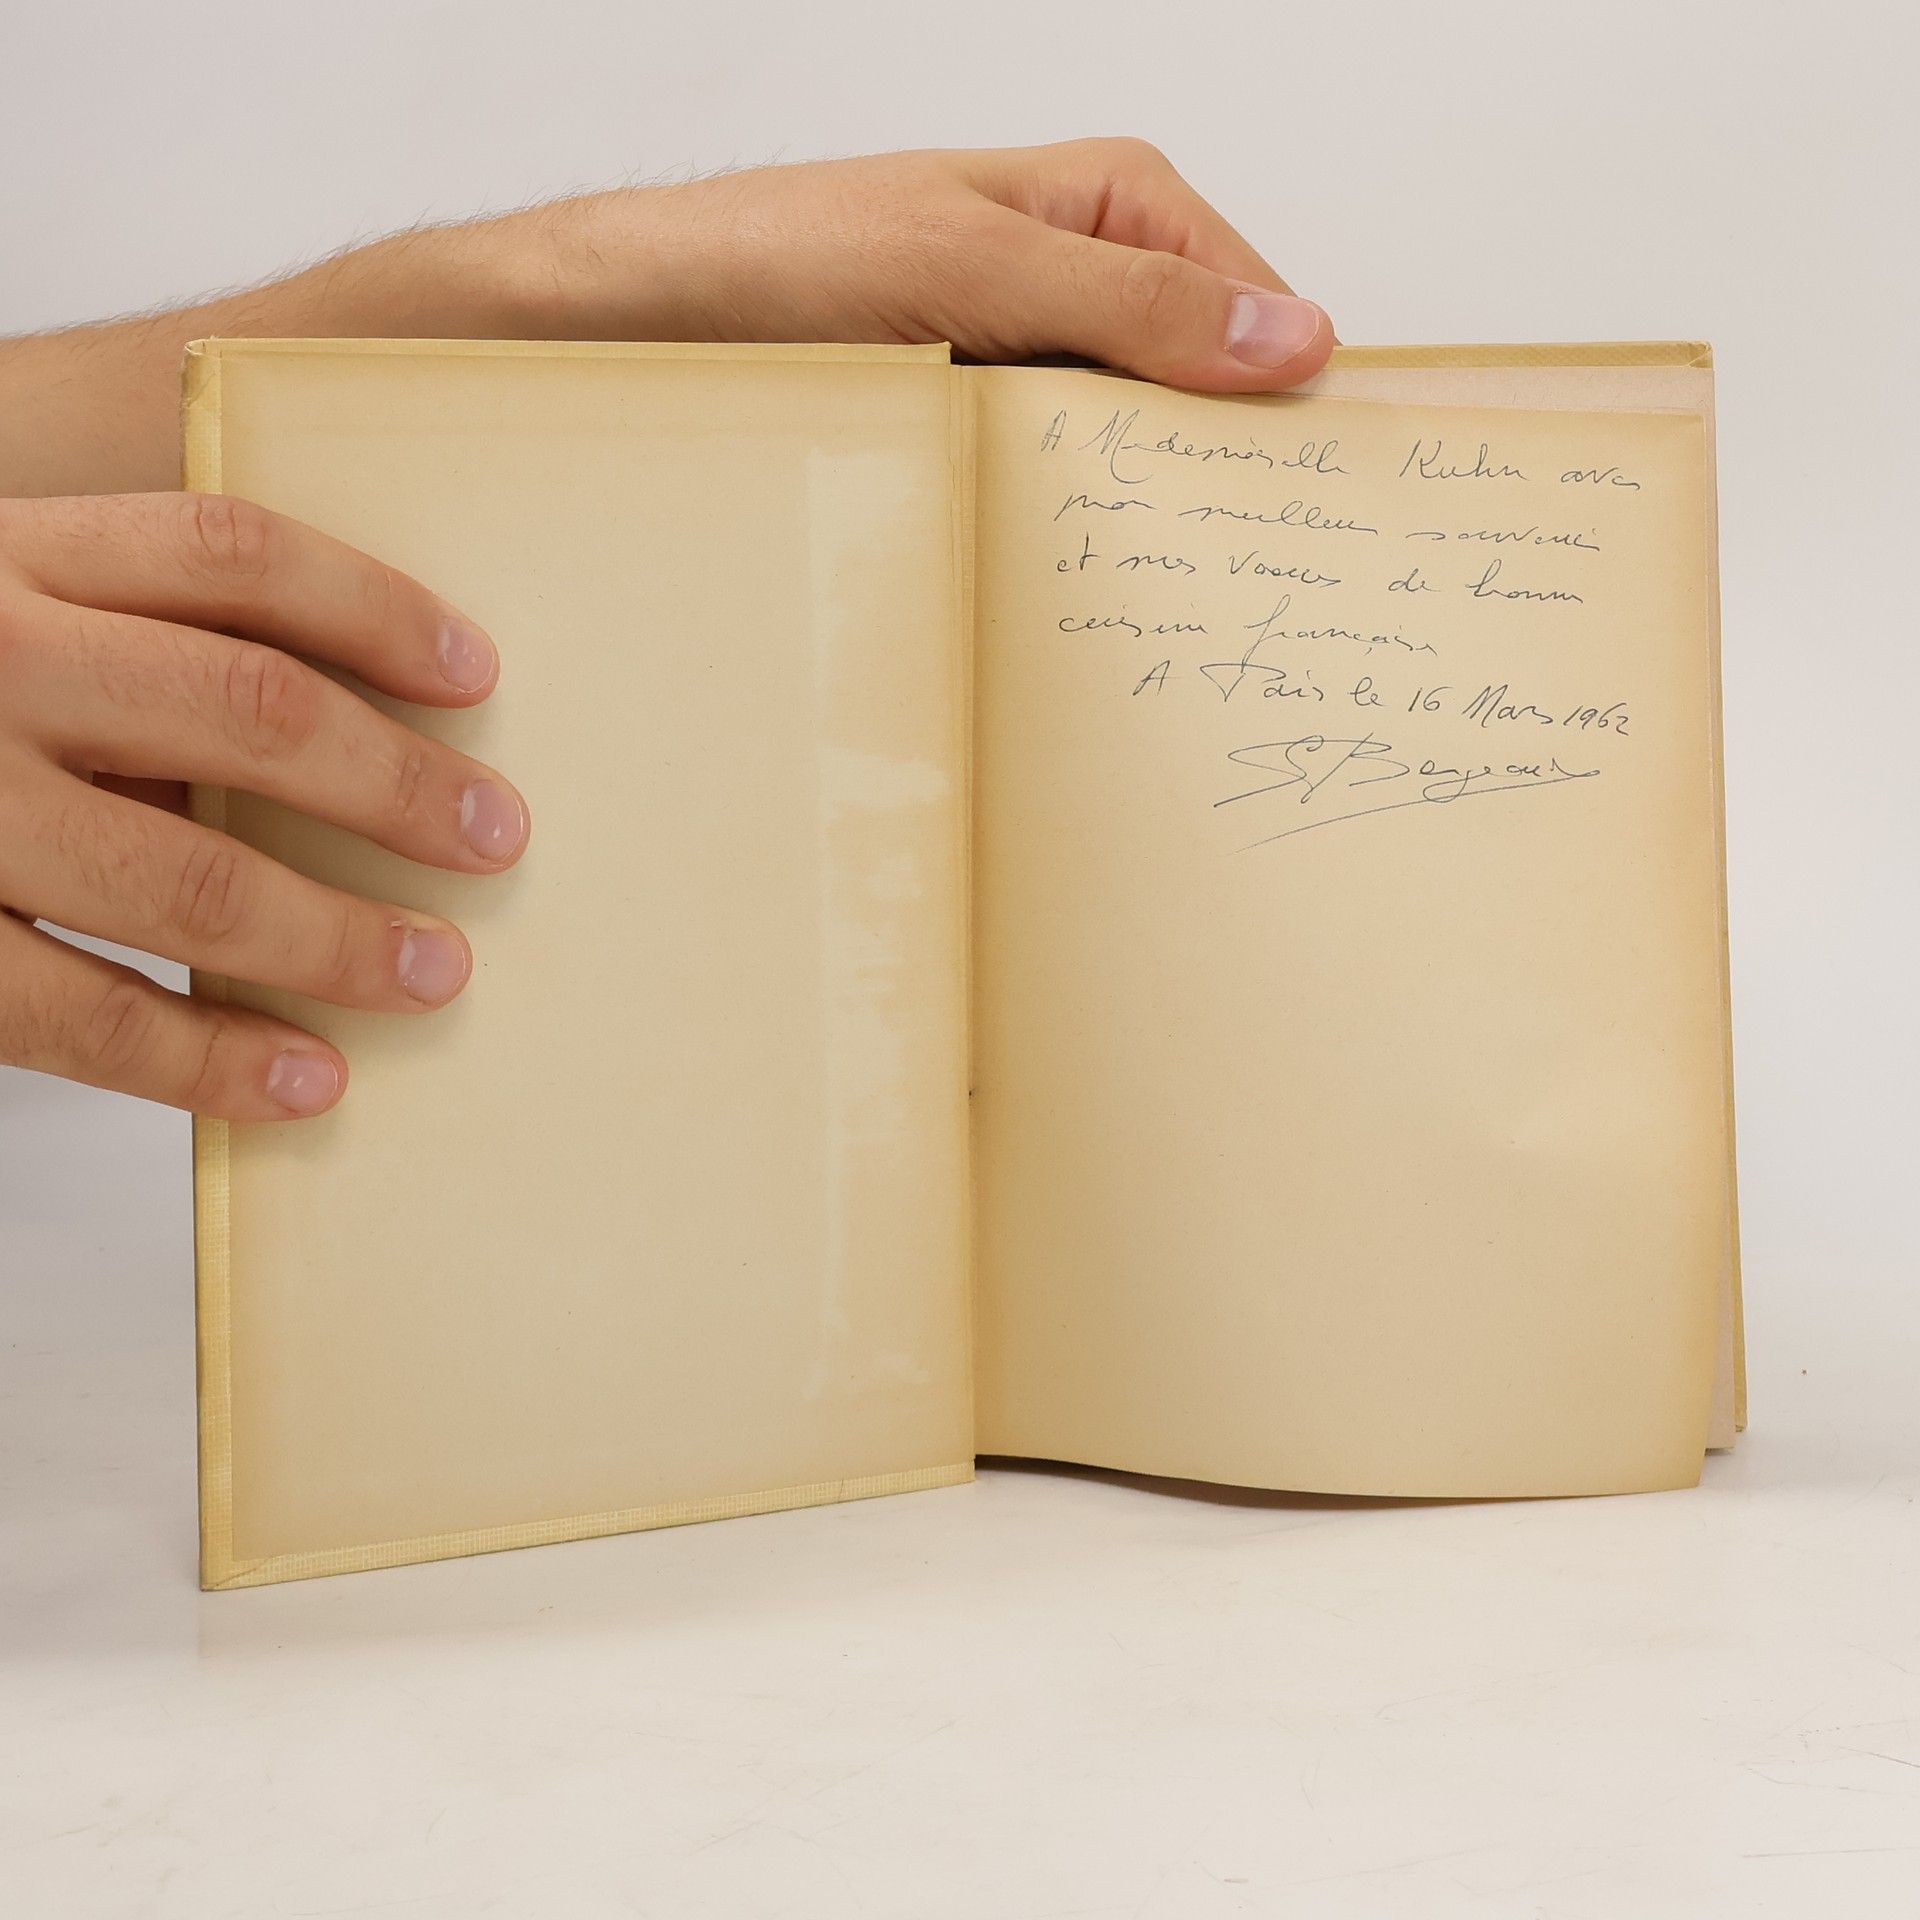 A Mademoiselle Kuhn avec
mon meilleur souvenir
et mes vœux de bonne
cuisine française
A Paris le 16 Mars 1962